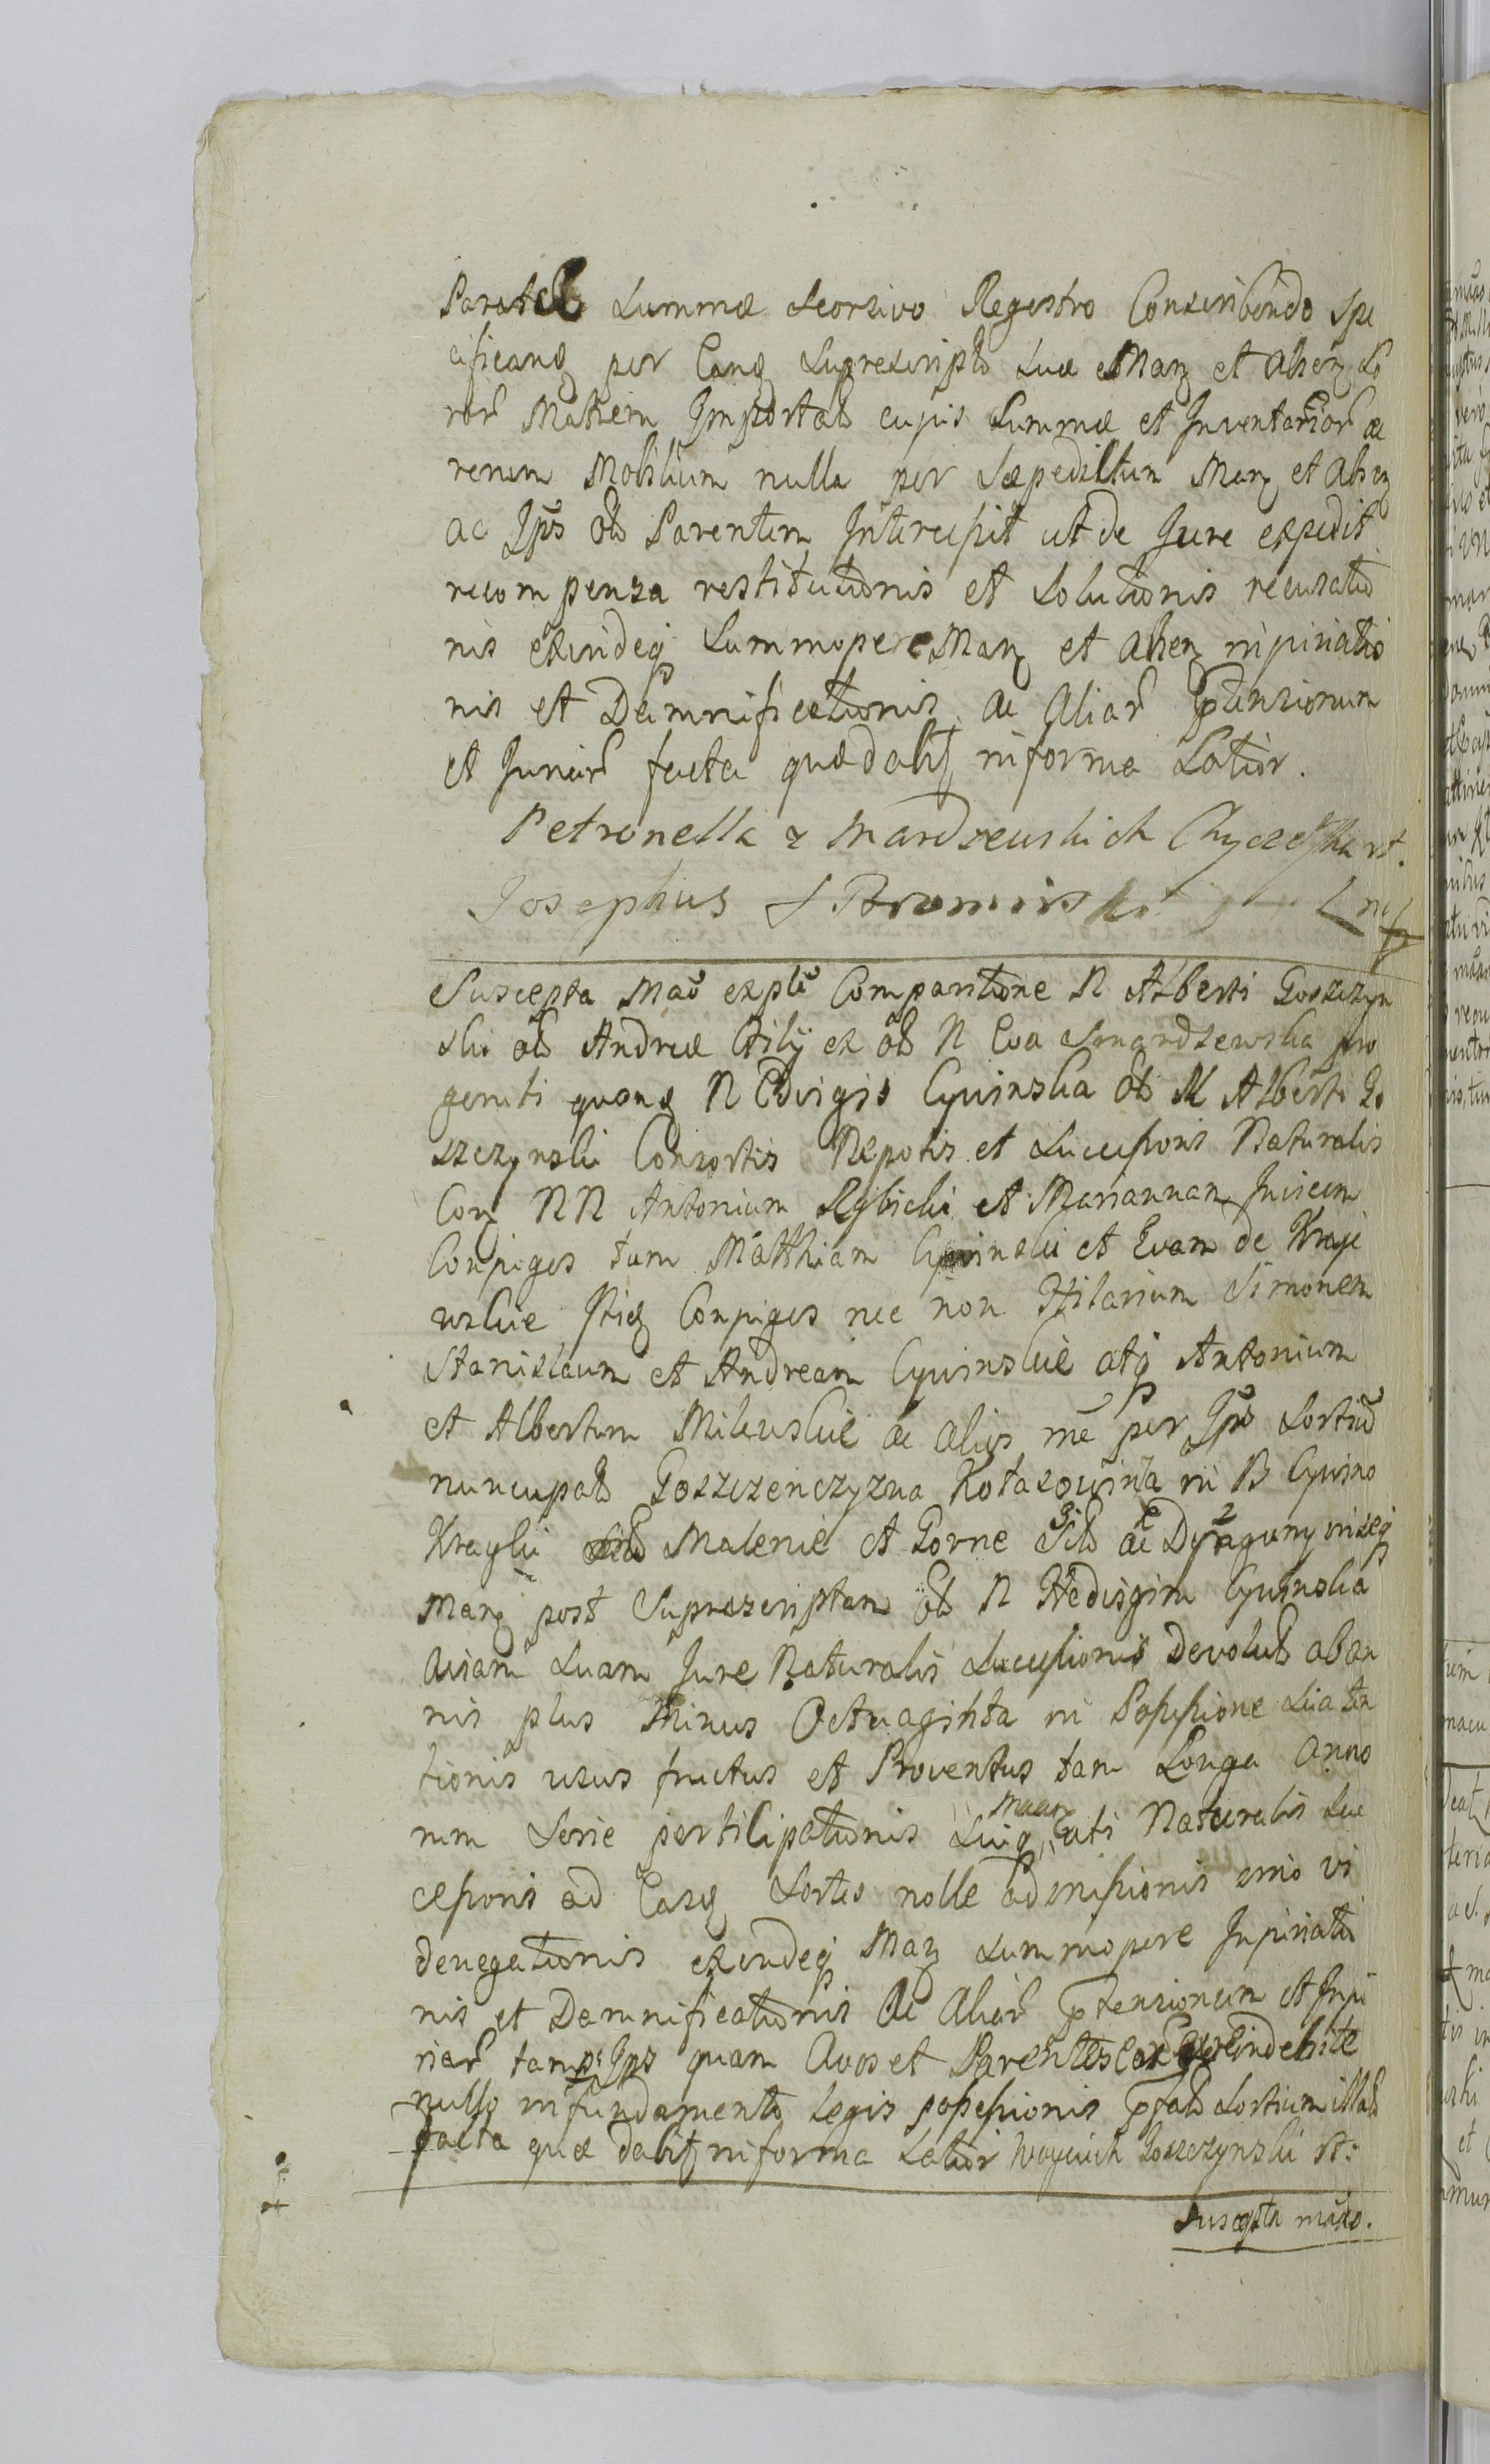 Paratae Summae Seorsivo Regestro Conscribendo Spe
cificanq per Eanq Suprescripto Suae Manq et Ahenq So
ror Mathem Importat cujus Summae et Inventarior ac
rerum Mobilium nulla per Saepedictum Manq et Ahenq
ac Jps ob Parentem Intercessit ut de Jure expedit
recompensa restitutionis et Solutionis recusatio
nis exindeq Summopere Manq et Ahenq injuriatio
nis et Damnificationis ac Aliar ptensionum
et Juriar facta quae dabit in forma Latior.
Petronella z Mardzewskich Chyczewska rt.
Josephus S Bromirski
Suscepta Mao expta Comparitione N Alberti Goszczyn
ski ob Andreae filij ex ob N Eva Smardzewska pro
geniti quonq N Edvigis Cywinska ob N Alberti Go
szczynski Consortis Nepotis et Successoris Naturalis
Con NN Antonium Rybicki et Mariannam Invicem
Conjuges tum Matthiam Cywinski et Evam de Kraje
wskie Itiq Conjuges nec non Hilarium Simonem
Stanislaum et Andream Cywinskie atq Antonium
et Albertum Milewskie ac Alios me per Jps Sortiu
nuncupat Goszczenczyzna Kotasowizna in B Cywino
Krayki Malenie et Gorne Sit ac Dyraguny inseq
Manq post Suprascriptam ob N Hedvigim Cywinska
Aviam Suam Jure Naturalis Successionis Devolut ab an
nis plus Minus Octuaginta in Possessione Sua ten
tionis usus fructus et Proventus tam Longa Anno
rum Serie participationis Suiq Manq uti Naturalis Suc
cessoris ad Easq Sortes nolle admissionis imo vi
denegationis exindeq Manq Summopere Injuriatio
nis et Damnificationis Ac Aliar ptensionum et Inju
riar tam p Jps quam Avos et Parentes indebite
nullo in fundamento Legis possessionis pfat Sortium illat
facta quae dabit in forma Latior Woyciech Goszczynski rt:
Suscepta mado.